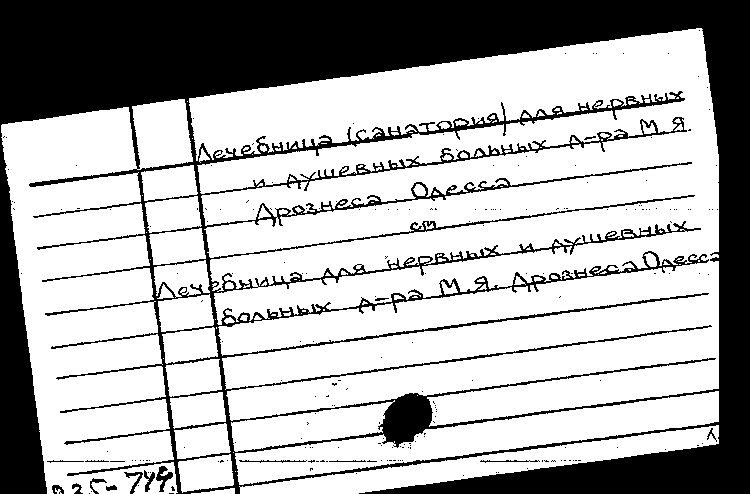 Лечебница (санатория) для нервных
и душевных больных д-ра М.Я.
Дрознеса Одесса
см
Лечебница для нервных и душевных
больных д-ра М.Я. Дрознеса Одесса